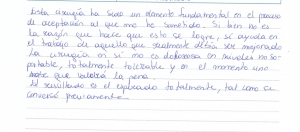 Esta cirugía ha sido un elemento fundamental en el proceso
de aceptación al que me he sometido. Si bien no es
la razón que hace que esto se logre, sí ayuda en
el trabajo de aquello que realmente debía ser mejorado.
La cirugía en sí no es dolorosa en niveles inso-
portable, totalmente tolerable y en el momento uno
sabe que valdrá la pena.
El resultado es el esperado totalmente, tal como se
conversó previamente.